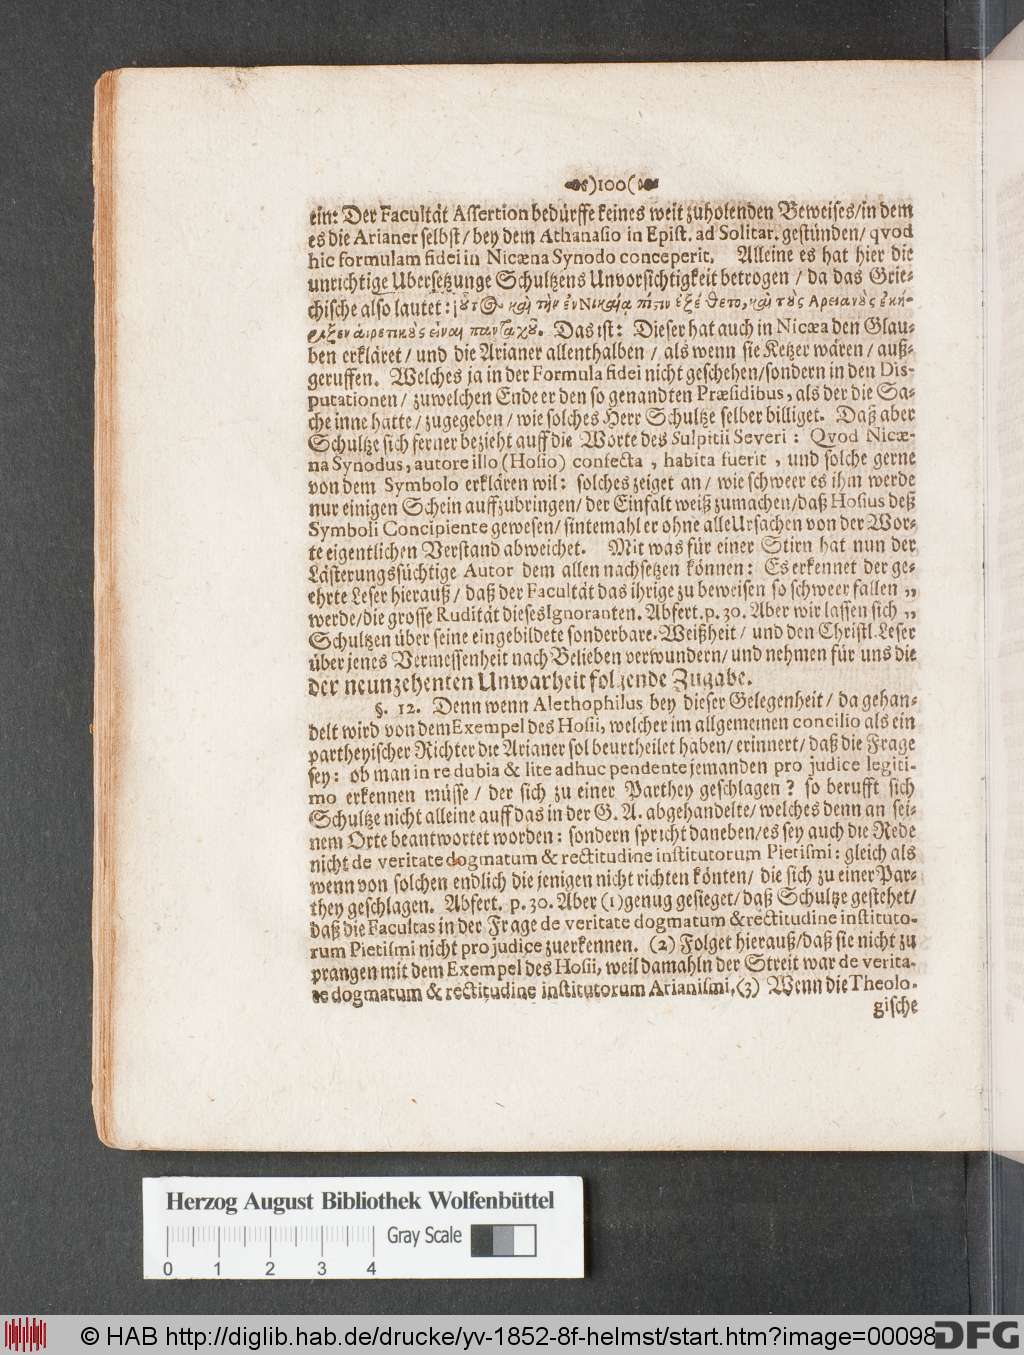 )100(
ein: Der Facultät Assertion bedürffe keines weit zuholenden Beweises/in dem
es die Arianer selbst/ bey dem Athanasio in Epist. ad Solitar. gestünden/ qvod
hic formulam fidei in Nicæna Synodo conceperit. Alleine es hat hier die
unrichtige Ubersetzunge Schultzens Unvorsichtigkeit betrogen / da das Grie-
chische also lautet: ȣ̔τ καὶ τὴν ἐν Νικαίᾳ πίςιν ἐξέθετο, καὶ τȣ̀ς Αρειανȣ̀ς ἐκή-
ρυξεν αἱρετικȣ̀ς εἶναι πανταχȣ̃. Das ist: Dieser hat auch in Nicæa den Glau-
ben erkläret/ und die Arianer allenthalben / als wenn sie Ketzer wären/ auß-
geruffen. Welches ja in der Formula fidei nicht geschehen/sondern in den Dis-
putationen/ zu welchen Ende er den so genandten Præsidibus, als der die Sa-
che inne hatte/ zugegeben/ wie solches Herr Schultze selber billiget. Daß aber
Schultze sich ferner bezieht auff die Worte des Sulpitii Severi: Qvod Nicæ-
na Synodus, autore illo (Hosio) confecta, habita fuerit, und solche gerne
von dem Symbolo erklären wil: solches zeiget an/ wie schweer es ihm werde
nur einigen Schein auffzubringen/ der Einfalt weiß zumachen/daß Hosius deß
Symboli Concipiente gewesen/ sintemahl er ohne alle Ursachen von der Wor-
te eigentlichen Verstand abweichet. Mit was für einer Stirn hat nun der
Lästerungssüchtige Autor dem allen nachsetzen können: Es erkennet der ge-
ehrte Leser hierauß/ daß der Facultät das ihrige zu beweisen so schweer fallen „
werde/die grosse Rudität dieses Ignoranten. Abfert. p. 30. Aber wir lassen sich „
Schultzen über seine eingebildete sonderbare Weißheit/ und den Christl. Leser
über jenes Vermessenheit nach Belieben verwundern/ und nehmen für uns die
der neunzehenten Unwarheit folgende Zugabe.
§. 12. Denn wenn Alethophilus bey dieser Gelegenheit/ da gehan-
delt wird von dem Exempel des Hosii, welcher im allgemeinen concilio als ein
partheyischer Richter die Arianer sol beurtheilet haben/ erinnert/ daß die Frage
sey: ob man in re dubia & lite adhuc pendente jemanden pro judice legiti-
mo erkennen müsse/ der sich zu einer Parthey geschlagen? so berufft sich
Schultze nicht alleine auff das in der G. A. abgehandelte/ welches denn an sei-
nem Orte beantwortet worden: sondern spricht daneben/ es sey auch die Rede
nicht de veritate dogmatum & rectitudine institutorum Pietismi: gleich als
wenn von solchen endlich die jenigen nicht richten könten/ die sich zu einer Par-
they geschlagen. Abfert. p. 30. Aber (1) genug gesieget/ daß Schultze gestehet/
daß die Facultas in der Frage de veritate dogmatum & rectitudine instituto-
rum Pietismi nicht pro judice zuerkennen. (2) Folget hierauß/daß sie nicht zu
prangen mit dem Exempel des Hosii, weil damahln der Streit war de verita-
te dogmatum & rectitudine institutorum Arianismi. (3) Wenn die Theolo-
gische
Herzog August Bibliothek Wolfenbüttel
Gray Scale
0 1 2 3 4
© HAB http://diglib.hab.de/drucke/yv-1852-8f-helmst/start.htm?image=00098
DFG